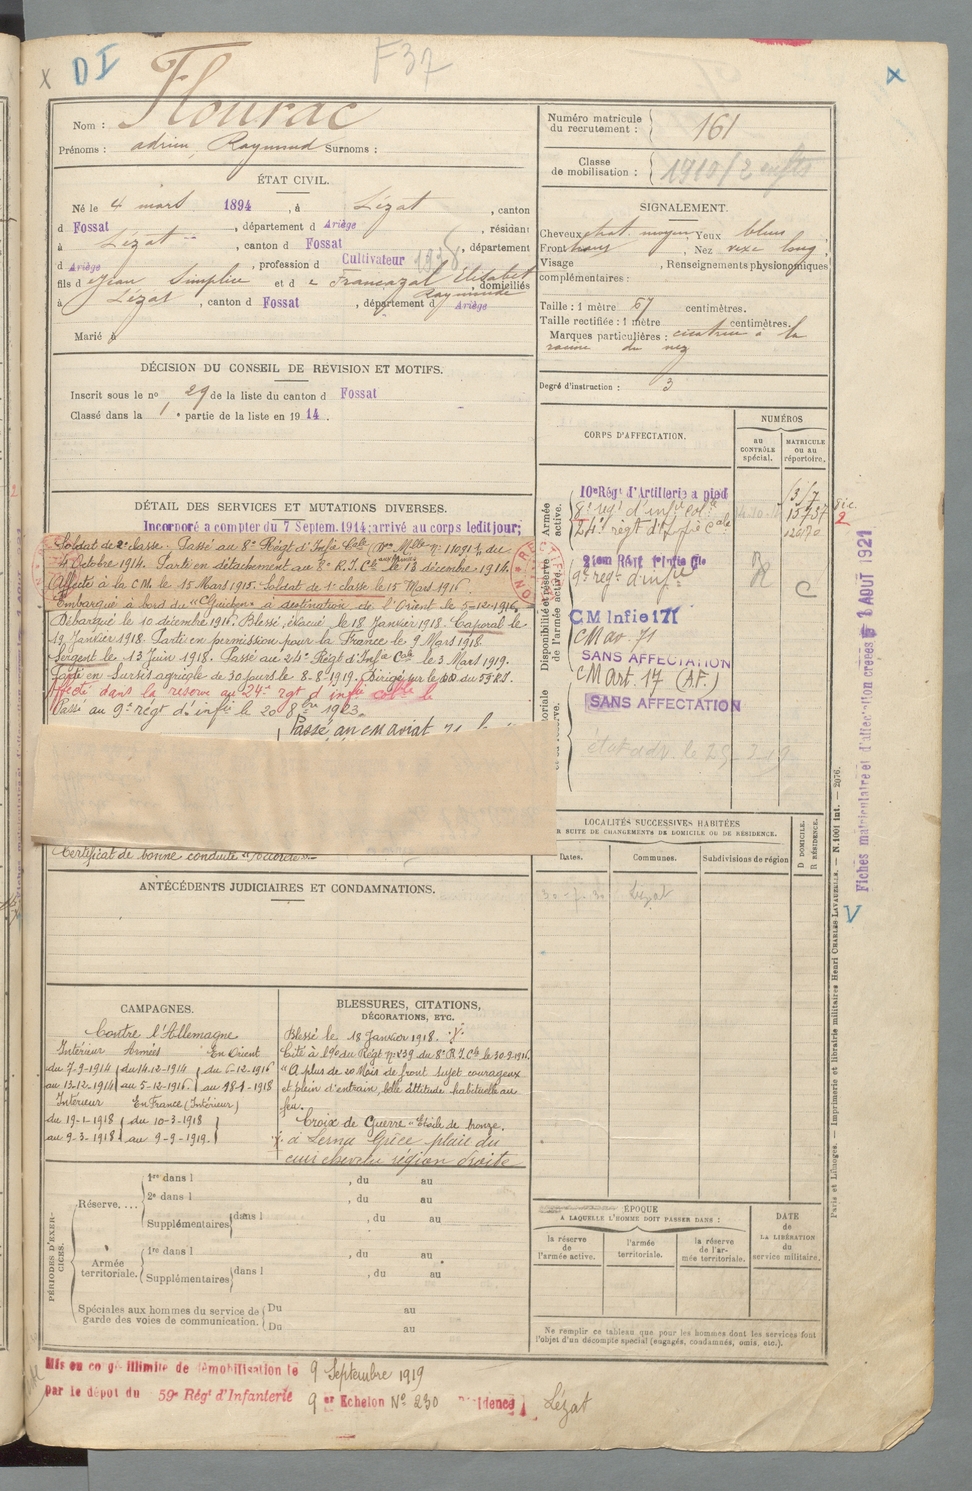 X D I F37 X
Nom : Flourac
Prénoms : adrien, Raymond Surnoms :
ÉTAT CIVIL.
Né le 4 mars 1894, à Lézat, canton
d Fossat, département d Ariège, résidant
à Lézat, canton d Fossat, département
d Ariège, profession d Cultivateur 1938
fils d Jean Simplice et d e Francazal Elisabet Raymonde, domiciliés
à Lézat, canton d Fossat, département d Ariège
Marié à
DÉCISION DU CONSEIL DE REVISION ET MOTIFS.
Inscrit sous le no 29 de la liste du canton d Fossat
Classé dans la 1e partie de la liste en 1914.
DÉTAIL DES SERVICES ET MUTATIONS DIVERSES.
Incorporé a compter du 7 Septem. 1914; arrivé au corps ledit jour;
Soldat de 2e classe. Passé au 8e Régt d'Infie Cale (No Mlle no 11091) du
4 Octobre 1914. Parti en détachement au 8e R.I.Cle aux Armées le 13 décembre 1914
Affecté à la C.M. le 15 Mars 1915. Soldat de 1e classe le 15 Mars 1916
Embarqué à bord du "Guichen" à destination de l'Orient le 5-12-1916,
Débarqué le 10 décembre 1916. Blessé, évacué le 18 Janvier 1918. Caporal le
19 Janvier 1918. Parti en permission pour la France le 9 Mars 1918
Sergent le 13 Juin 1918. Passé au 24e Régt d'Infie Cale le 3 Mars 1919.
Parti en Sursis agricole de 30 jours le 8.8.1919. Dirigé sur le DD du 59 RI.
Affecté dans la reserve au 24e rgt d infie cole le
Passé au 9e régt d'infie le 20 8bre 1923.
Passé au CM ariat 71
Certificat de bonne conduite "Accordé"
ANTÉCÉDENTS JUDICIAIRES ET CONDAMNATIONS.
CAMPAGNES.
Contre l'Allemagne
Intérieur Armées En Orient
du 7-9-1914 du 14-12-1914 du 6-12-1916
au 13-12-1914 au 5-12-1916 au 18-1-1918
Intérieur En France (Intérieur)
du 19-1-1918 du 10-3-1918
au 9-3-1918 au 9-9-1919
BLESSURES, CITATIONS,
DÉCORATIONS, ETC.
Blessé le 18 Janvier 1918.
Cité à l'O. du Régt no 239 du 8e R.I.Cle le 30-9-1916
"A plus de 20 Mois de front sujet courageux
et plein d'entrain, belle attitude habituelle au
feu.
Croix de Guerre "Etoile de bronze.
à Lerna Grèce plaie du
cuir chevelu région droite
PÉRIODES D'EXERCICES.
Réserve....
1re dans l , du au
2e dans l , du au
Supplémentaires dans l , du au
Armée territoriale.
1re dans l , du au
Supplémentaires dans l , du au
Spéciales aux hommes du service de garde des voies de communication.
Du au
Du au
Mis en congé illimité de démobilisation le 9 Septembre 1919
par le dépot du 59e Régt d'Infanterie 9er Echelon No 230 Résidence Lézat
Numéro matricule
du recrutement : 161
Classe
de mobilisation : 1910/2 enfts
SIGNALEMENT.
Cheveux chat. moyen, Yeux bleus
Front, Nez vexe long,
Visage, Renseignements physionomiques
complémentaires :
Taille : 1 mètre 67 centimètres.
Taille rectifiée : 1 mètre centimètres.
Marques particulières : cicatrice à la
racine du nez
Degré d'instruction : 3
CORPS D'AFFECTATION.
NUMÉROS
au
CONTRÔLE
spécial.
MATRICULE
ou au
répertoire.
Armée active.
10e Régt d'Artillerie a pied
8e régt d'infie Cole
24e régt d'infie Cale
Disponibilité et réserve de l'armée active.
9e régt d'infie
CM Infie 171
C Mar. 71
SANS AFFECTATION
C M art. 17 (A.F.)
SANS AFFECTATION
LOCALITÉS SUCCESSIVES HABITÉES
PAR SUITE DE CHANGEMENTS DE DOMICILE OU DE RÉSIDENCE.
Dates. Communes. Subdivisions de région
D DOMICILE.
R RÉSIDENCE.
Lézat
ÉPOQUE
A LAQUELLE L'HOMME DOIT PASSER DANS :
la réserve
de
l'armée active.
l'armée
territoriale.
la réserve
de l'ar-
mée territoriale.
DATE
de
LA LIBÉRATION
du
service militaire.
Ne remplir ce tableau que pour les hommes dont les services font
l'objet d'un décompte spécial (engagés, condamnés, omis, etc.).
Fiches matriculaire et d'affectation créées 1 AOUT 1921
V
Paris et Limoges. — Imprimerie et librairie militaires Henri CHARLES-LAVAUZELLE. — N. 1001 int. — 2076.